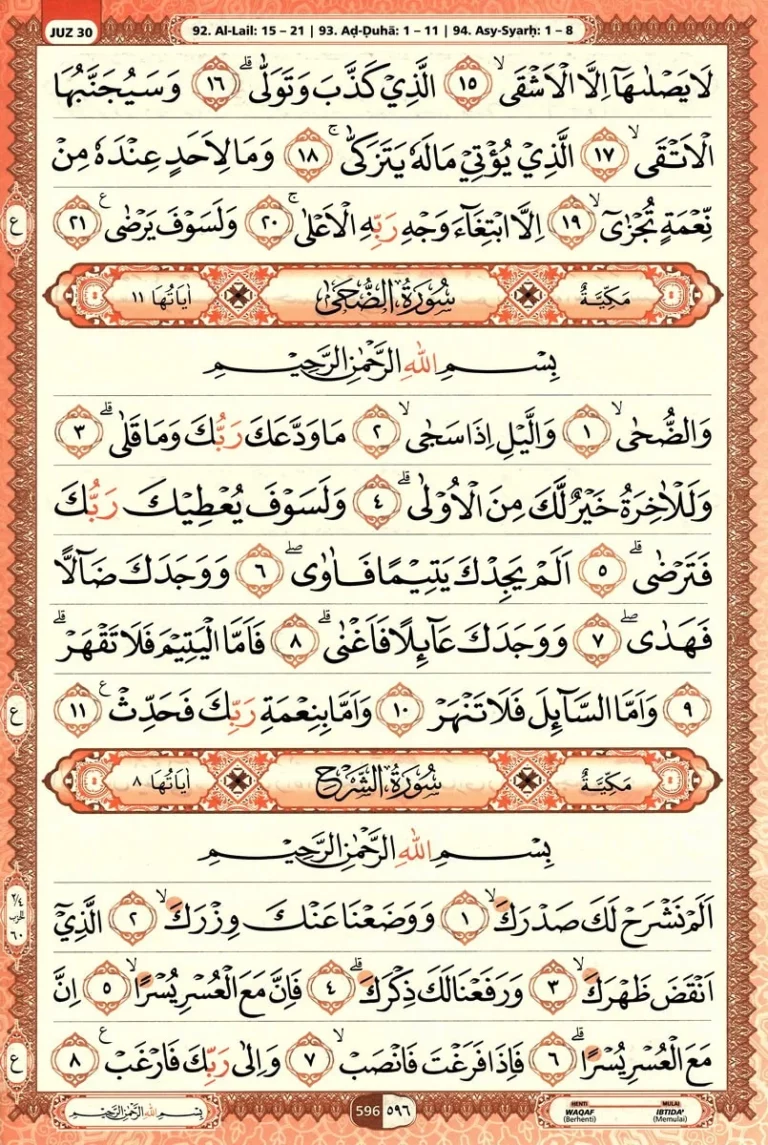 JUZ 30
92. Al-Lail: 15 – 21 | 93. Aḍ-Ḍuḥā: 1 – 11 | 94. Asy-Syarḥ: 1 – 8
لَا يَصْلٰىهَآ اِلَّا الْاَشْقَىۙ ١٥ الَّذِيْ كَذَّبَ وَتَوَلّٰىۗ ١٦ وَسَيُجَنَّبُهَا
الْاَتْقَىۙ ١٧ الَّذِيْ يُؤْتِيْ مَالَهٗ يَتَزَكّٰىۚ ١٨ وَمَا لِاَحَدٍ عِنْدَهٗ مِنْ
نِّعْمَةٍ تُجْزٰىٓۙ ١٩ اِلَّا ابْتِغَاۤءَ وَجْهِ رَبِّهِ الْاَعْلٰىۚ ٢٠ وَلَسَوْفَ يَرْضٰى ࣖ ٢١
ع
مَكِّيَّةٌ سُوْرَةُ الضُّحٰى اٰيَاتُهَا ١١
بِسْمِ اللّٰهِ الرَّحْمٰنِ الرَّحِيْمِ
وَالضُّحٰىۙ ١ وَالَّيْلِ اِذَا سَجٰىۙ ٢ مَا وَدَّعَكَ رَبُّكَ وَمَا قَلٰىۗ ٣
وَلَلْاٰخِرَةُ خَيْرٌ لَّكَ مِنَ الْاُوْلٰىۗ ٤ وَلَسَوْفَ يُعْطِيْكَ رَبُّكَ
فَتَرْضٰىۗ ٥ اَلَمْ يَجِدْكَ يَتِيْمًا فَاٰوٰىۖ ٦ وَوَجَدَكَ ضَاۤلًّا
فَهَدٰىۖ ٧ وَوَجَدَكَ عَاۤىِٕلًا فَاَغْنٰىۗ ٨ فَاَمَّا الْيَتِيْمَ فَلَا تَقْهَرْۗ
٩ وَاَمَّا السَّاۤىِٕلَ فَلَا تَنْهَرْ ١٠ وَاَمَّا بِنِعْمَةِ رَبِّكَ فَحَدِّثْ ࣖ ١١
ع
مَكِّيَّةٌ سُوْرَةُ الشَّرْحِ اٰيَاتُهَا ٨
بِسْمِ اللّٰهِ الرَّحْمٰنِ الرَّحِيْمِ
اَلَمْ نَشْرَحْ لَكَ صَدْرَكَۙ ١ وَوَضَعْنَا عَنْكَ وِزْرَكَۙ ٢ الَّذِيْٓ
٣/٤
الحزب
٦٠
اَنْقَضَ ظَهْرَكَۙ ٣ وَرَفَعْنَا لَكَ ذِكْرَكَۗ ٤ فَاِنَّ مَعَ الْعُسْرِ يُسْرًاۙ ٥ اِنَّ
مَعَ الْعُسْرِ يُسْرًاۗ ٦ فَاِذَا فَرَغْتَ فَانْصَبْۙ ٧ وَاِلٰى رَبِّكَ فَارْغَبْ ࣖ ٨
ع
بِسْمِ اللّٰهِ الرَّحْمٰنِ الرَّحِيْمِ
596 ٥٩٦
HENTI
WAQAF
(Berhenti)
MULAI
IBTIDA'
(Memulai)